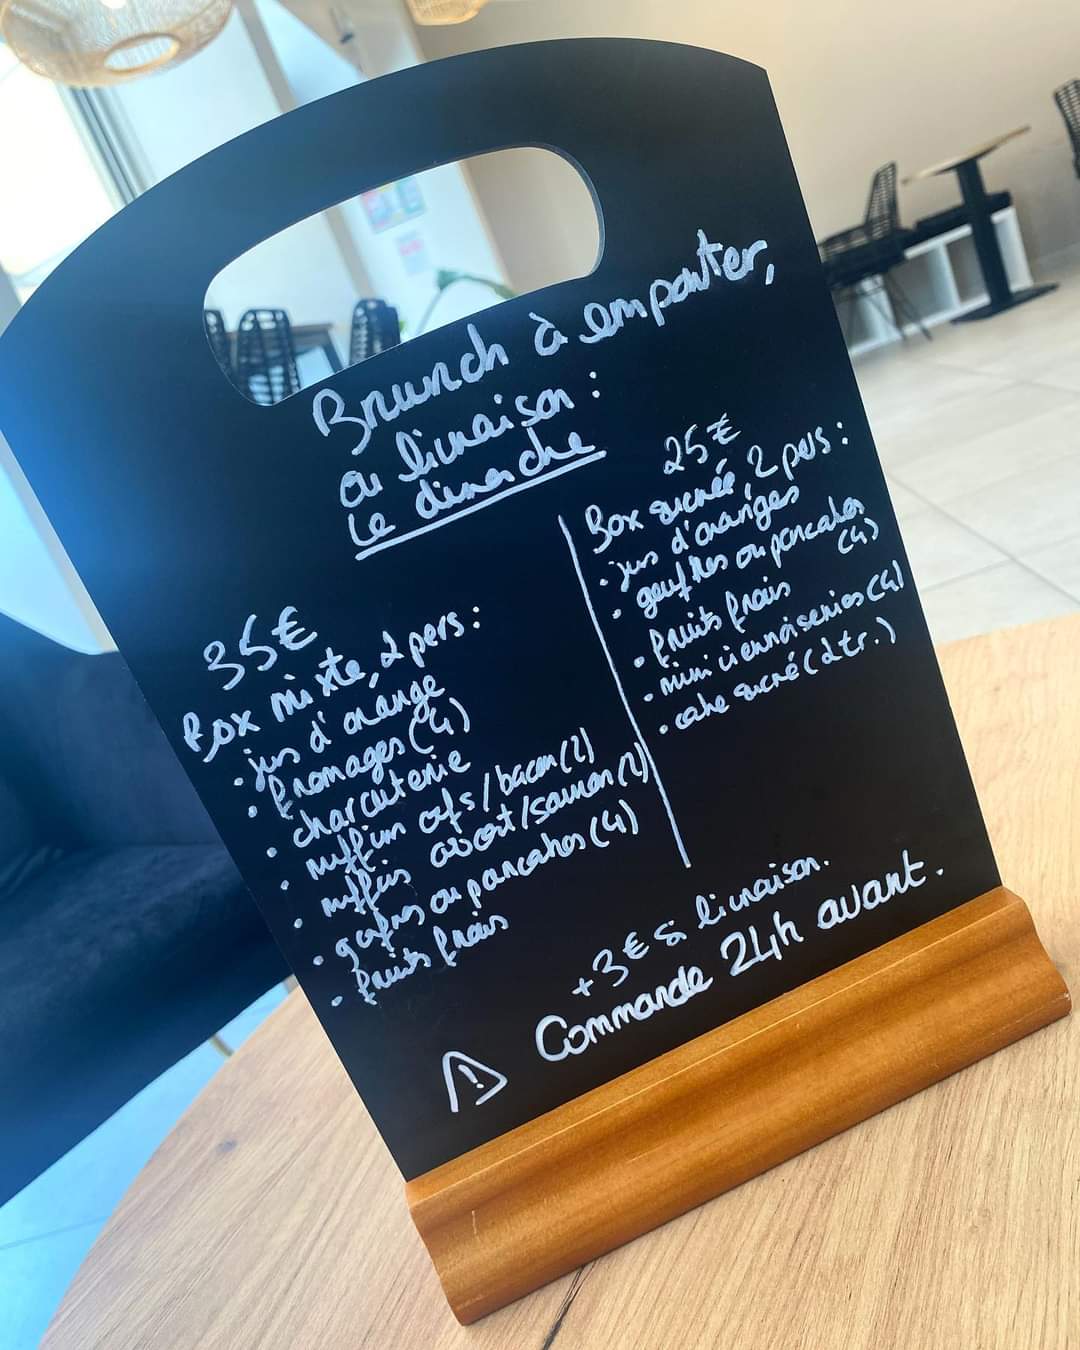 Brunch à emporter,
ou livraison :
Le dimanche
35€
Box mixte, 2 pers :
• jus d'orange
• fromages (4)
• charcuterie
• muffin œufs/bacon (2)
• muffins avocat/saumon (2)
• gaufres ou pancakes (4)
• fruits frais
25€
Box sucrée, 2 pers :
• jus d'oranges
• gauffres ou pancakes
(4)
• fruits frais
• mini viennoiseries (4)
• cake sucré (2 tr.)
+3€ si livraison.
⚠ Commande 24h avant.